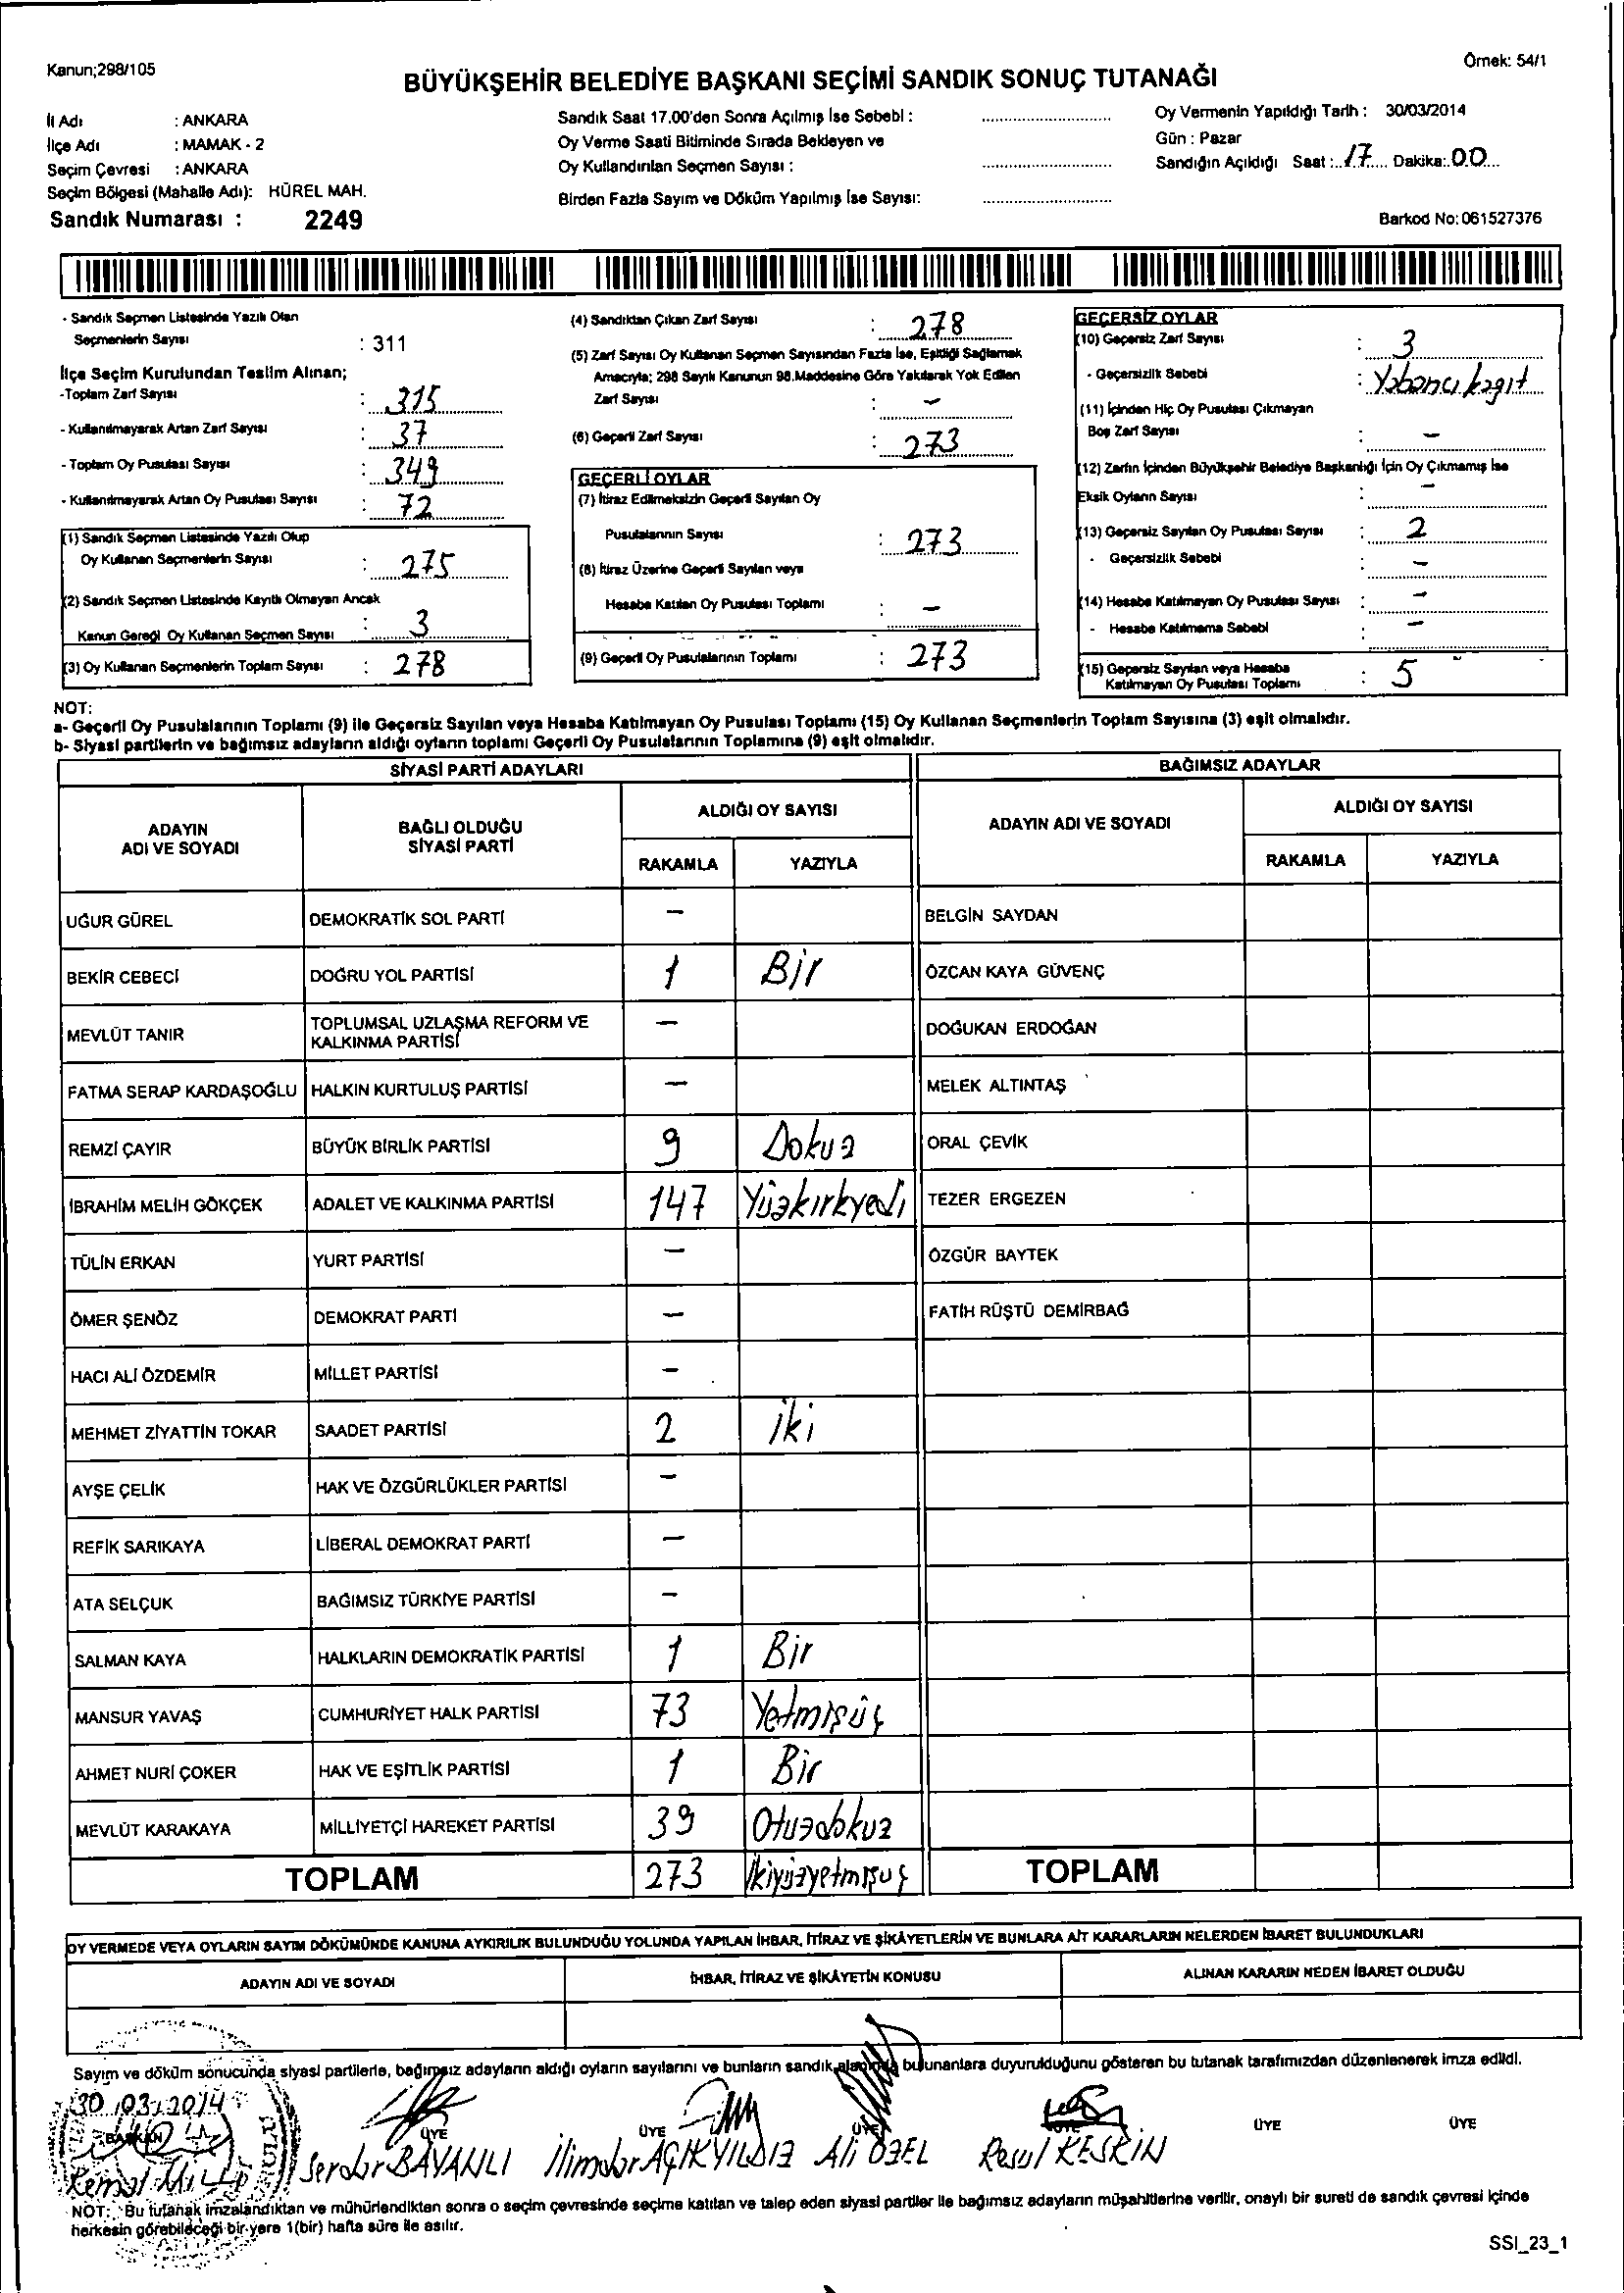 Kanun;298/105
Örnek: 54/1
BÜYÜKŞEHİR BELEDİYE BAŞKANI SEÇİMİ SANDIK SONUÇ TUTANAĞI
İl Adı : ANKARA
İlçe Adı : MAMAK - 2
Seçim Çevresi : ANKARA
Seçim Bölgesi (Mahalle Adı): HÜREL MAH.
Sandık Numarası : 2249
Sandık Saat 17.00'den Sonra Açılmış İse Sebebi :
Oy Verme Saati Bitiminde Sırada Bekleyen ve
Oy Kullandırılan Seçmen Sayısı :
Birden Fazla Sayım ve Döküm Yapılmış İse Sayısı:
Oy Vermenin Yapıldığı Tarih : 30/03/2014
Gün : Pazar
Sandığın Açıldığı Saat : 17 Dakika: 00
Barkod No: 061527376
- Sandık Seçmen Listesinde Yazılı Olan
Seçmenlerin Sayısı : 311
İlçe Seçim Kurulundan Teslim Alınan;
-Toplam Zarf Sayısı : 315
- Kullanılmayarak Artan Zarf Sayısı : 37
- Toplam Oy Pusulası Sayısı : 349
- Kullanılmayarak Artan Oy Pusulası Sayısı : 72
(1) Sandık Seçmen Listesinde Yazılı Olup
Oy Kullanan Seçmenlerin Sayısı : 275
(2) Sandık Seçmen Listesinde Kayıtlı Olmayan Ancak
Kanun Gereği Oy Kullanan Seçmen Sayısı : 3
(3) Oy Kullanan Seçmenlerin Toplam Sayısı : 278
(4) Sandıktan Çıkan Zarf Sayısı : 278
(5) Zarf Sayısı Oy Kullanan Seçmen Sayısından Fazla İse, Eşitliği Sağlamak
Amacıyla; 298 Sayılı Kanunun 98.Maddesine Göre Yakılarak Yok Edilen
Zarf Sayısı : -
(6) Geçerli Zarf Sayısı : 273
GEÇERLİ OYLAR
(7) İtiraz Edilmeksizin Geçerli Sayılan Oy
Pusulalarının Sayısı : 273
(8) İtiraz Üzerine Geçerli Sayılan veya
Hesaba Katılan Oy Pusulası Toplamı : -
(9) Geçerli Oy Pusulalarının Toplamı : 273
GEÇERSİZ OYLAR
(10) Geçersiz Zarf Sayısı : 3
- Geçersizlik Sebebi : Yabancı kağıt
(11) İçinden Hiç Oy Pusulası Çıkmayan
Boş Zarf Sayısı : -
(12) Zarfın İçinden Büyükşehir Belediye Başkanlığı İçin Oy Çıkmamış İse
Eksik Oyların Sayısı : -
(13) Geçersiz Sayılan Oy Pusulası Sayısı : 2
- Geçersizlik Sebebi : -
(14) Hesaba Katılmayan Oy Pusulası Sayısı : -
- Hesaba Katılmama Sebebi : -
(15) Geçersiz Sayılan veya Hesaba
Katılmayan Oy Pusulası Toplamı : 5
NOT:
a- Geçerli Oy Pusulalarının Toplamı (9) ile Geçersiz Sayılan veya Hesaba Katılmayan Oy Pusulası Toplamı (15) Oy Kullanan Seçmenlerin Toplam Sayısına (3) eşit olmalıdır.
b- Siyasi partilerin ve bağımsız adayların aldığı oyların toplamı Geçerli Oy Pusulalarının Toplamına (9) eşit olmalıdır.
SİYASİ PARTİ ADAYLARI
ADAYIN ADI VE SOYADI
BAĞLI OLDUĞU SİYASİ PARTİ
ALDIĞI OY SAYISI
RAKAMLA YAZIYLA
UĞUR GÜREL DEMOKRATİK SOL PARTİ -
BEKİR CEBECİ DOĞRU YOL PARTİSİ 1 Bir
MEVLÜT TANIR TOPLUMSAL UZLAŞMA REFORM VE KALKINMA PARTİSİ -
FATMA SERAP KARDAŞOĞLU HALKIN KURTULUŞ PARTİSİ -
REMZİ ÇAYIR BÜYÜK BİRLİK PARTİSİ 9 Dokuz
İBRAHİM MELİH GÖKÇEK ADALET VE KALKINMA PARTİSİ 147 Yüzkırkyedi
TÜLİN ERKAN YURT PARTİSİ -
ÖMER ŞENÖZ DEMOKRAT PARTİ -
HACI ALİ ÖZDEMİR MİLLET PARTİSİ -
MEHMET ZİYATTİN TOKAR SAADET PARTİSİ 2 iki
AYŞE ÇELİK HAK VE ÖZGÜRLÜKLER PARTİSİ -
REFİK SARIKAYA LİBERAL DEMOKRAT PARTİ -
ATA SELÇUK BAĞIMSIZ TÜRKİYE PARTİSİ -
SALMAN KAYA HALKLARIN DEMOKRATİK PARTİSİ 1 Bir
MANSUR YAVAŞ CUMHURİYET HALK PARTİSİ 73 Yetmişüç
AHMET NURİ ÇOKER HAK VE EŞİTLİK PARTİSİ 1 Bir
MEVLÜT KARAKAYA MİLLİYETÇİ HAREKET PARTİSİ 39 Otuzdokuz
TOPLAM 273 ikiyüzyetmişuç
BAĞIMSIZ ADAYLAR
ADAYIN ADI VE SOYADI
ALDIĞI OY SAYISI
RAKAMLA YAZIYLA
BELGİN SAYDAN
ÖZCAN KAYA GÜVENÇ
DOĞUKAN ERDOĞAN
MELEK ALTINTAŞ
ORAL ÇEVİK
TEZER ERGEZEN
ÖZGÜR BAYTEK
FATİH RÜŞTÜ DEMİRBAĞ
TOPLAM
OY VERMEDE VEYA OYLARIN SAYIM DÖKÜMÜNDE KANUNA AYKIRILIK BULUNDUĞU YOLUNDA YAPILAN İHBAR, İTİRAZ VE ŞİKÂYETLERİN VE BUNLARA AİT KARARLARIN NELERDEN İBARET BULUNDUKLARI
ADAYIN ADI VE SOYADI
İHBAR, İTİRAZ VE ŞİKÂYETİN KONUSU
ALINAN KARARIN NEDEN İBARET OLDUĞU
Sayım ve döküm sonucunda siyasi partilerle, bağımsız adayların aldığı oyların sayılarını ve bunların sandık alanında bulunanlara duyurulduğunu gösteren bu tutanak tarafımızdan düzenlenerek imza edildi.
30.03.2014
BAŞKAN ÜYE ÜYE ÜYE ÜYE ÜYE ÜYE
Kemal Serdar BAYANLI İlimdar AÇIKYILDIZ Ali ÖZEL Resul KESKİN
NOT: Bu tutanak imzalandıktan ve mühürlendikten sonra o seçim çevresinde seçime katılan ve talep eden siyasi partiler ile bağımsız adayların müşahitlerine verilir, onaylı bir sureti de sandık çevresi içinde
herkesin görebileceği bir yere 1(bir) hafta süre ile asılır.
SSI_23_1